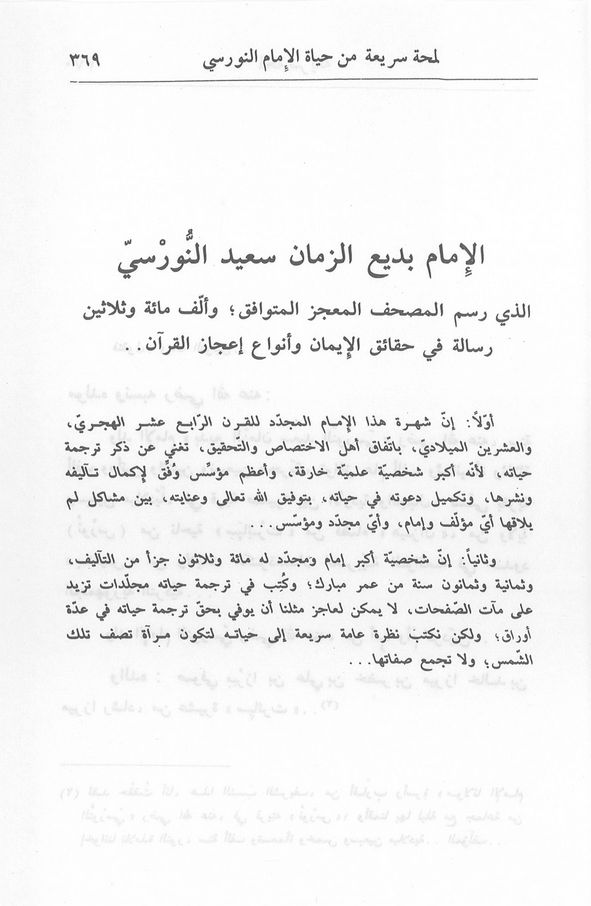 لمحة سريعة من حياة الإمام النورسي
٣٦٩
الإمام بديع الزمان سعيد النُّورْسيّ
الذي رسم المصحف المعجز المتوافق؛ وألّف مائة وثلاثين
رسالة في حقائق الإيمان وأنواع إعجاز القرآن..
أوّلاً: إنّ شهرة هذا الإمـام المجدّد للقـرن الرّابـع عشـر الهجريّ،
والعشرين الميلاديّ، باتّفاق أهل الاختصاص والتّحقيق، تغني عن ذكر ترجمة
حياته، لأنّه أكبر شخصيّة علميّة خارقة، وأعظم مؤسِّس وُفِّق لإكمال تـآليفه
ونشرها، وتكميل دعوته في حياته، بتوفيق الله تعالى وعنايته، بين مشاكل لم
يلاقها أيّ مؤلّف وإمام، وأيّ مجدّد ومؤسّس...
وثانياً: إنّ شخصيّة أكبر إمام ومجدّد له مائة وثلاثون جزأ من التآليف،
وثمانية وثمانون سنة من عمر مبارك؛ وكُتِب في ترجمة حياته مجلّدات تزيد
على مآت الصّفحات، لا يمكن لعاجز مثلنا أن يوفي بحقّ ترجمة حياته في عدّة
أوراق؛ ولكن نكتب نظرة عامة سريعة إلى حياتـه لتكون مـرآة تصف تلك
الشّمس؛ ولا تجمع صفاتها...